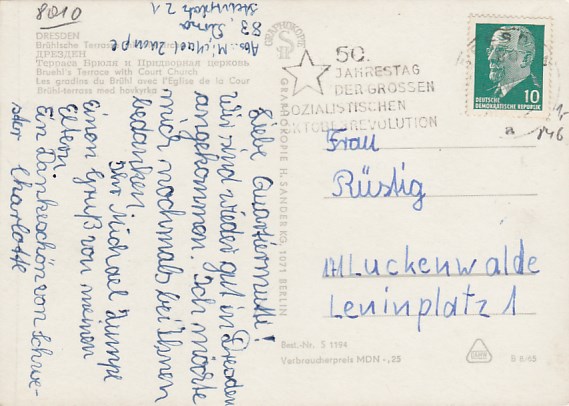 8010
DRESDEN
Brühlsche Terrasse
ДРЕЗДЕН
Терраса Брюля и Придворная церковь
Bruehl's Terrace with Court Church
Les gradins du Brühl avec l'Église de la Cour
Brühl-terrass med hovkyrka
Abs. Michael Zumpe
83, Pirna
1
Liebe Quartiermutti!
Wir sind wieder gut in Dresden
angekommen. Ich möchte
mich nochmals bei Ihnen
bedanken.
Ihr Michael Zumpe
Einen Gruß von meinen
Eltern
Ein Dankeschön von Schwe-
ster Charlotte
GRAPHOKOPIE
GRAPHOKOPIE H. SANDER KG, 1071 BERLIN
50.
JAHRESTAG
DER GROSSEN
SOZIALISTISCHEN
OKTOBERREVOLUTION
DEUTSCHE
DEMOKRATISCHE REPUBLIK
10
1,-
a 146
Frau
Rüstig
171 Luckenwalde
Leninplatz 1
Best.-Nr. S 1194
Verbraucherpreis MDN -,25
B 8/65